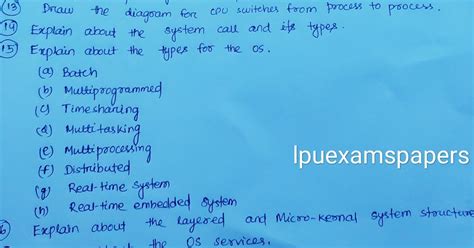 13) Draw the diagram for CPU switches from process to process.
14) Explain about the system call and its types.
15) Explain about the types for the OS.
(a) Batch
(b) Multiprogrammed
(c) Timesharing
(d) Multitasking
(e) Multiprocessing
(f) Distributed
lpuexamspapers
(g) Real-time system
(h) Real-time embedded system
6) Explain about the layered and Micro-kernal system structure
the OS services.